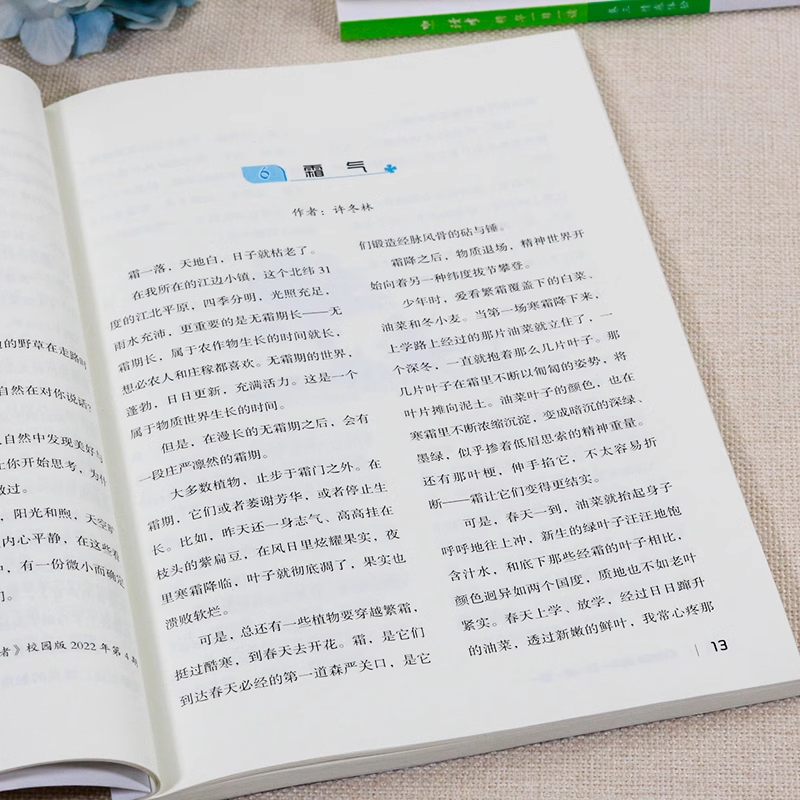 的野草在走路时
自然在对你说话?
自然中发现美好与
让你开始思考,为什
放过。
,阳光和煦,天空
内心平静,在这些看
中,有一份微小而确定
们。
者》校园版 2022 年第 4 期
6 霜气
作者:许冬林
霜一落,天地白,日子就枯老了。
在我所在的江边小镇,这个北纬 31
度的江北平原,四季分明,光照充足,
雨水充沛,更重要的是无霜期长——无
霜期长,属于农作物生长的时间就长,
想必农人和庄稼都喜欢。无霜期的世界,
蓬勃,日日更新,充满活力。这是一个
属于物质世界生长的时间。
但是,在漫长的无霜期之后,会有
一段庄严凛然的霜期。
大多数植物,止步于霜门之外。在
霜期,它们或者萎谢芳华,或者停止生
长。比如,昨天还一身志气、高高挂在
枝头的紫扁豆,在风日里炫耀果实,夜
里寒霜降临,叶子就彻底凋了,果实也
溃败软烂。
可是,总还有一些植物要穿越繁霜,
挺过酷寒,到春天去开花。霜,是它们
到达春天必经的第一道森严关口,是它
们锻造经脉风骨的砧与锤。
霜降之后,物质退场,精神世界开
始向着另一种纬度拔节攀登。
少年时,爱看繁霜覆盖下的白菜、
油菜和冬小麦。当第一场寒霜降下来,
上学路上经过的那片油菜就立住了,一
个深冬,一直就抱着那么几片叶子。那
几片叶子在霜里不断以匍匐的姿势,将
叶片摊向泥土。油菜叶子的颜色,也在
寒霜里不断浓缩沉淀,变成暗沉的深绿、
墨绿,似乎掺着低眉思索的精神重量。
还有那叶梗,伸手掐它,不太容易折
断——霜让它们变得更结实。
可是,春天一到,油菜就抬起身子
呼呼地往上冲,新生的绿叶子汪汪地饱
含汁水,和底下那些经霜的叶子相比,
颜色迥异如两个国度,质地也不如老叶
紧实。春天上学、放学,经过日日蹿升
的油菜,透过新嫩的鲜叶,我常心疼那
13